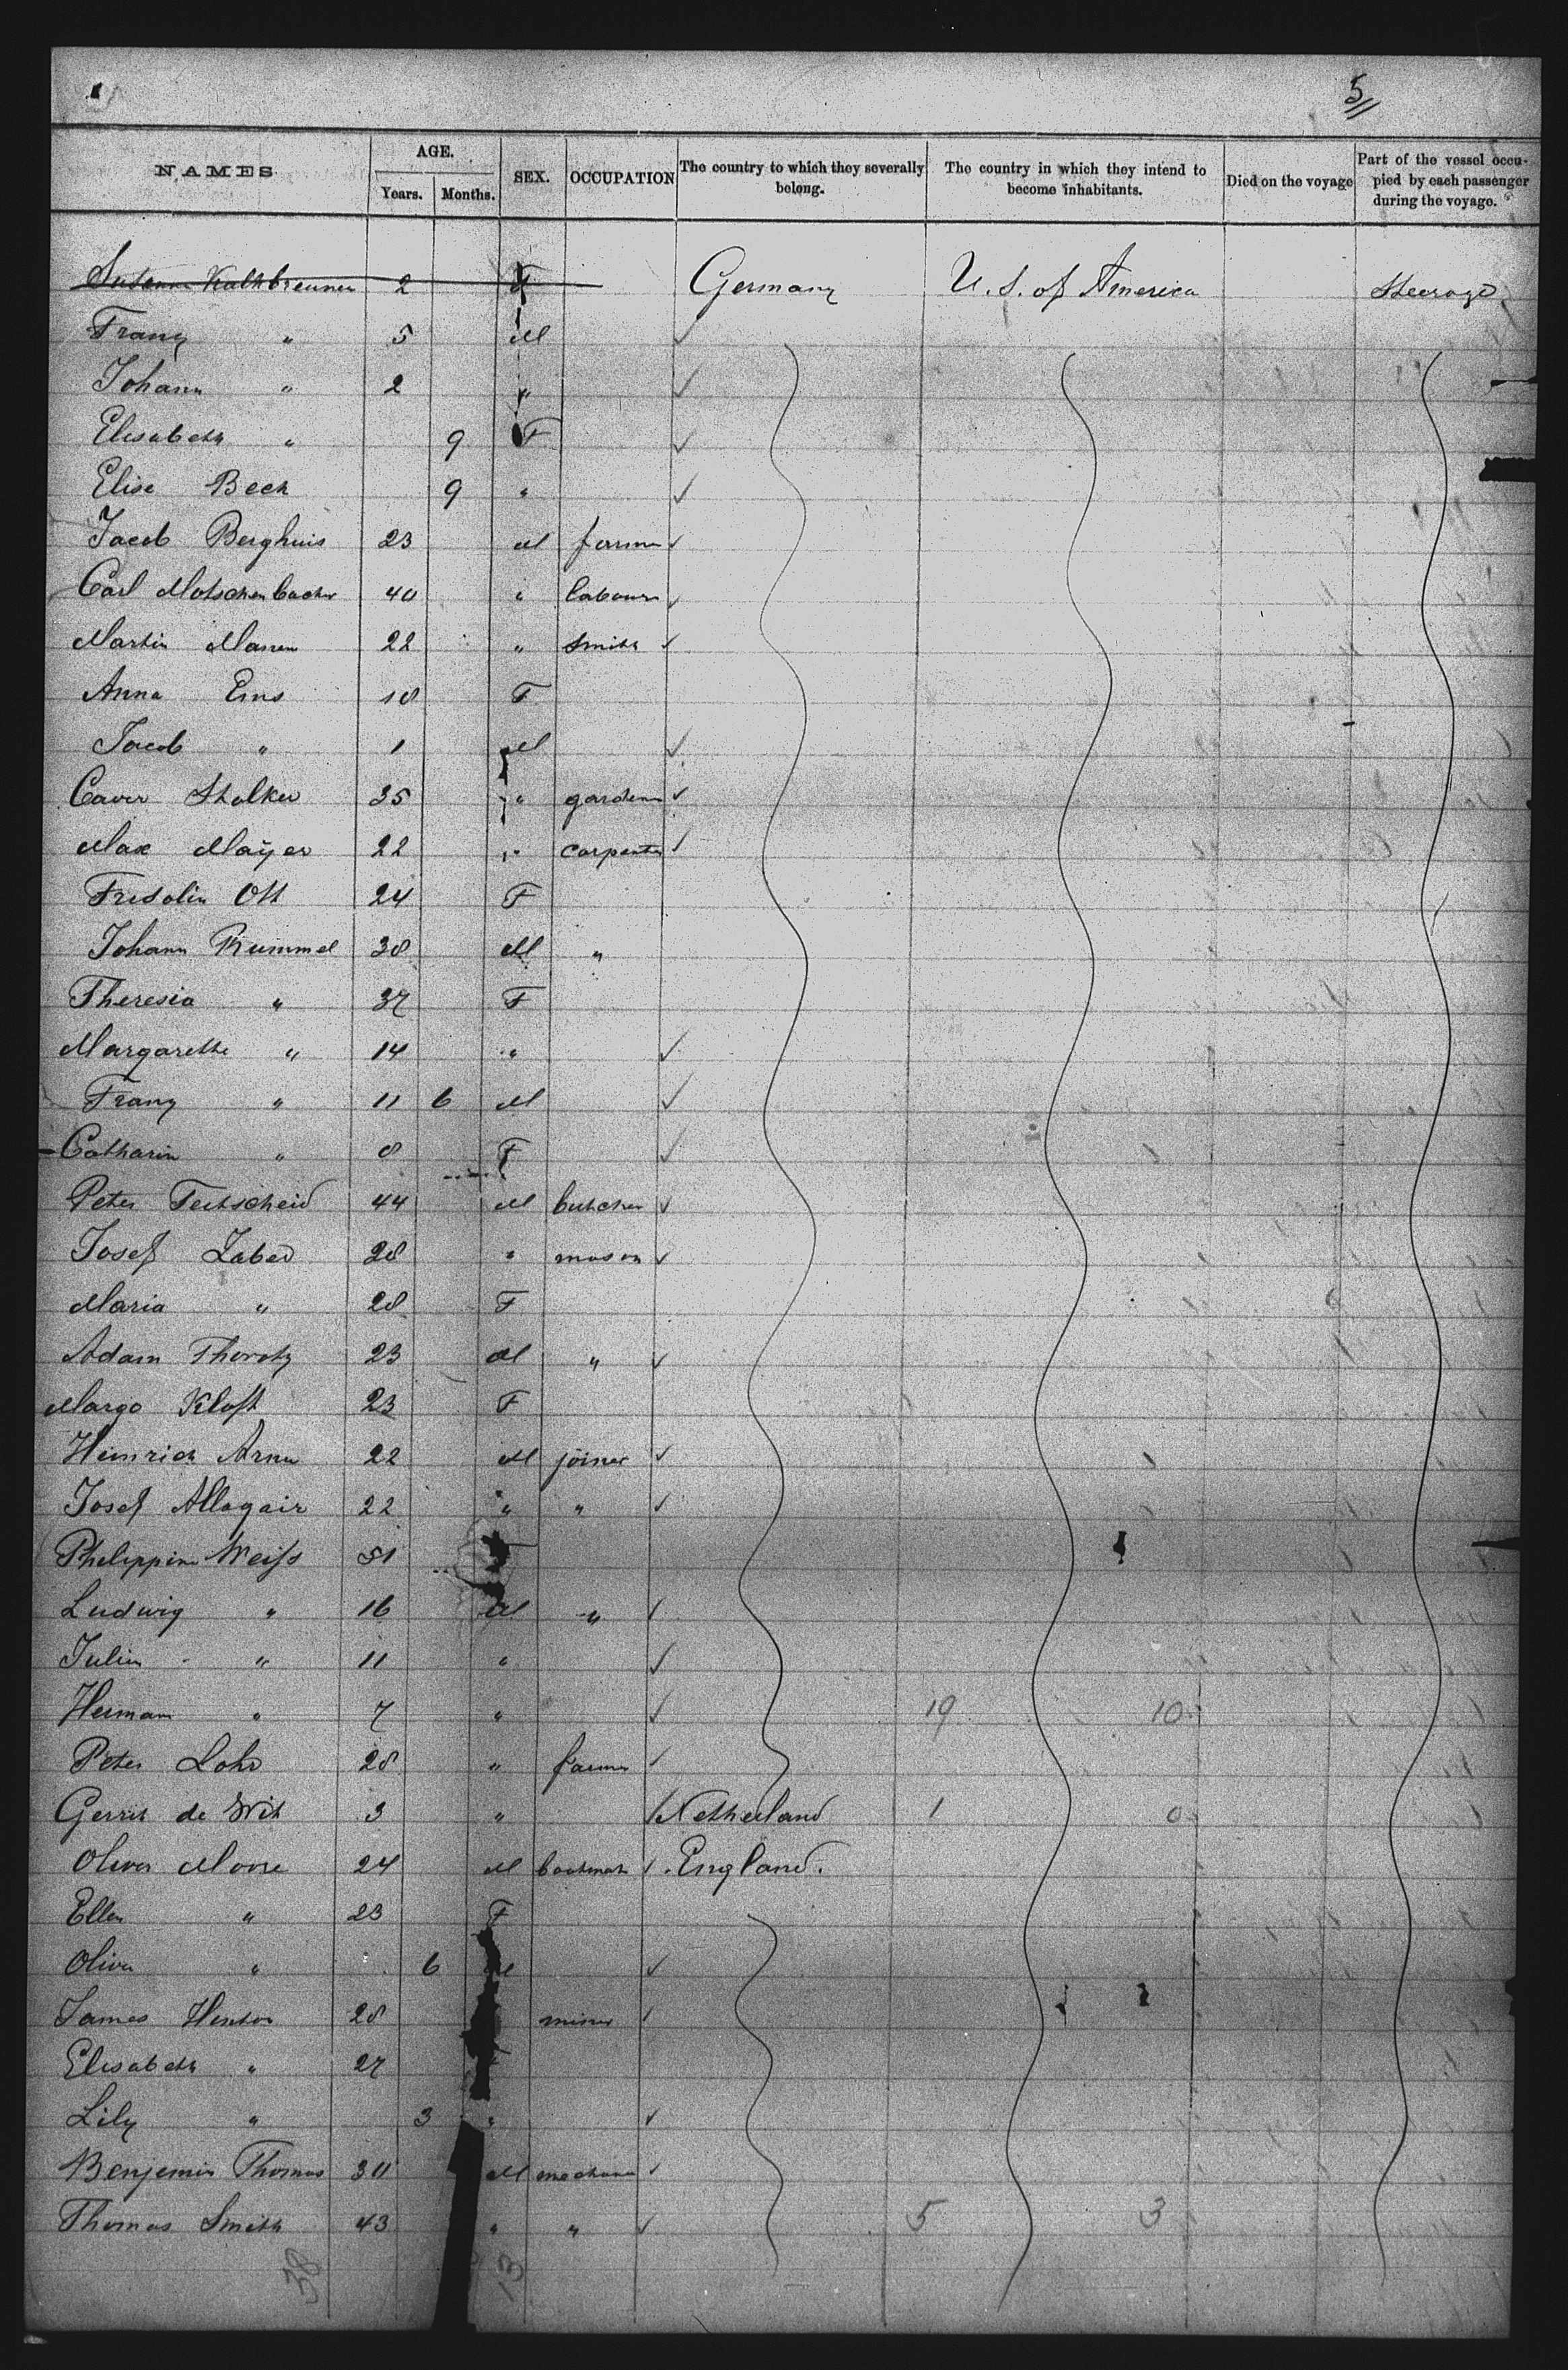 5
NAMES AGE. Years. Months. SEX. OCCUPATION The country to which they severally belong. The country in which they intend to become inhabitants. Died on the voyage Part of the vessel occupied by each passenger during the voyage.
Susanna Kalkbrenner 2 F Germany U. S. of America Steerage
Franz " 5 M ✓
Johann " 2 " ✓
Elisabeth " 9 F ✓
Elise Beck 9 " ✓
Jacob Berghuis 23 M farmer ✓
Carl Motschenbacher 40 " labourer ✓
Martin 22 " smith ✓
Anna Ems 18 F
Jacob " 1 M ✓
Caver Stalker 35 " gardener ✓
Max Mayer 22 " carpenter ✓
Fridolin Ott 24 F
Johann Rummel 38 M "
Theresia " 37 F
Margarethe " 14 " ✓
Franz " 11 6 M ✓
Catharin " 8 F ✓
Peter Teitscheid 44 M butcher ✓
Josef Zabel 28 " mason ✓
Maria " 28 F
Adam 23 M " ✓
Margo Kloft 23 F
Heinrich 22 M joiner ✓
Josef Allagair 22 " " ✓
Philippine Weiss 51
Ludwig " 16 M " ✓
Julius " 11 " ✓
Herman " 7 " ✓ 19 10
Peter Lohr 28 " farmer ✓
Gerrit de Wit 3 " ✓ Netherland 1 0
Oliver Moore 24 M ✓ England.
Ellen " 23 F
Oliver " 6 M ✓
James Henton 28 miner ✓
Elisabeth " 27
Lily " 3 " ✓
Benjemin Thomas 30 M mechanic ✓
Thomas Smith 43 " " ✓ 5 3
38 13